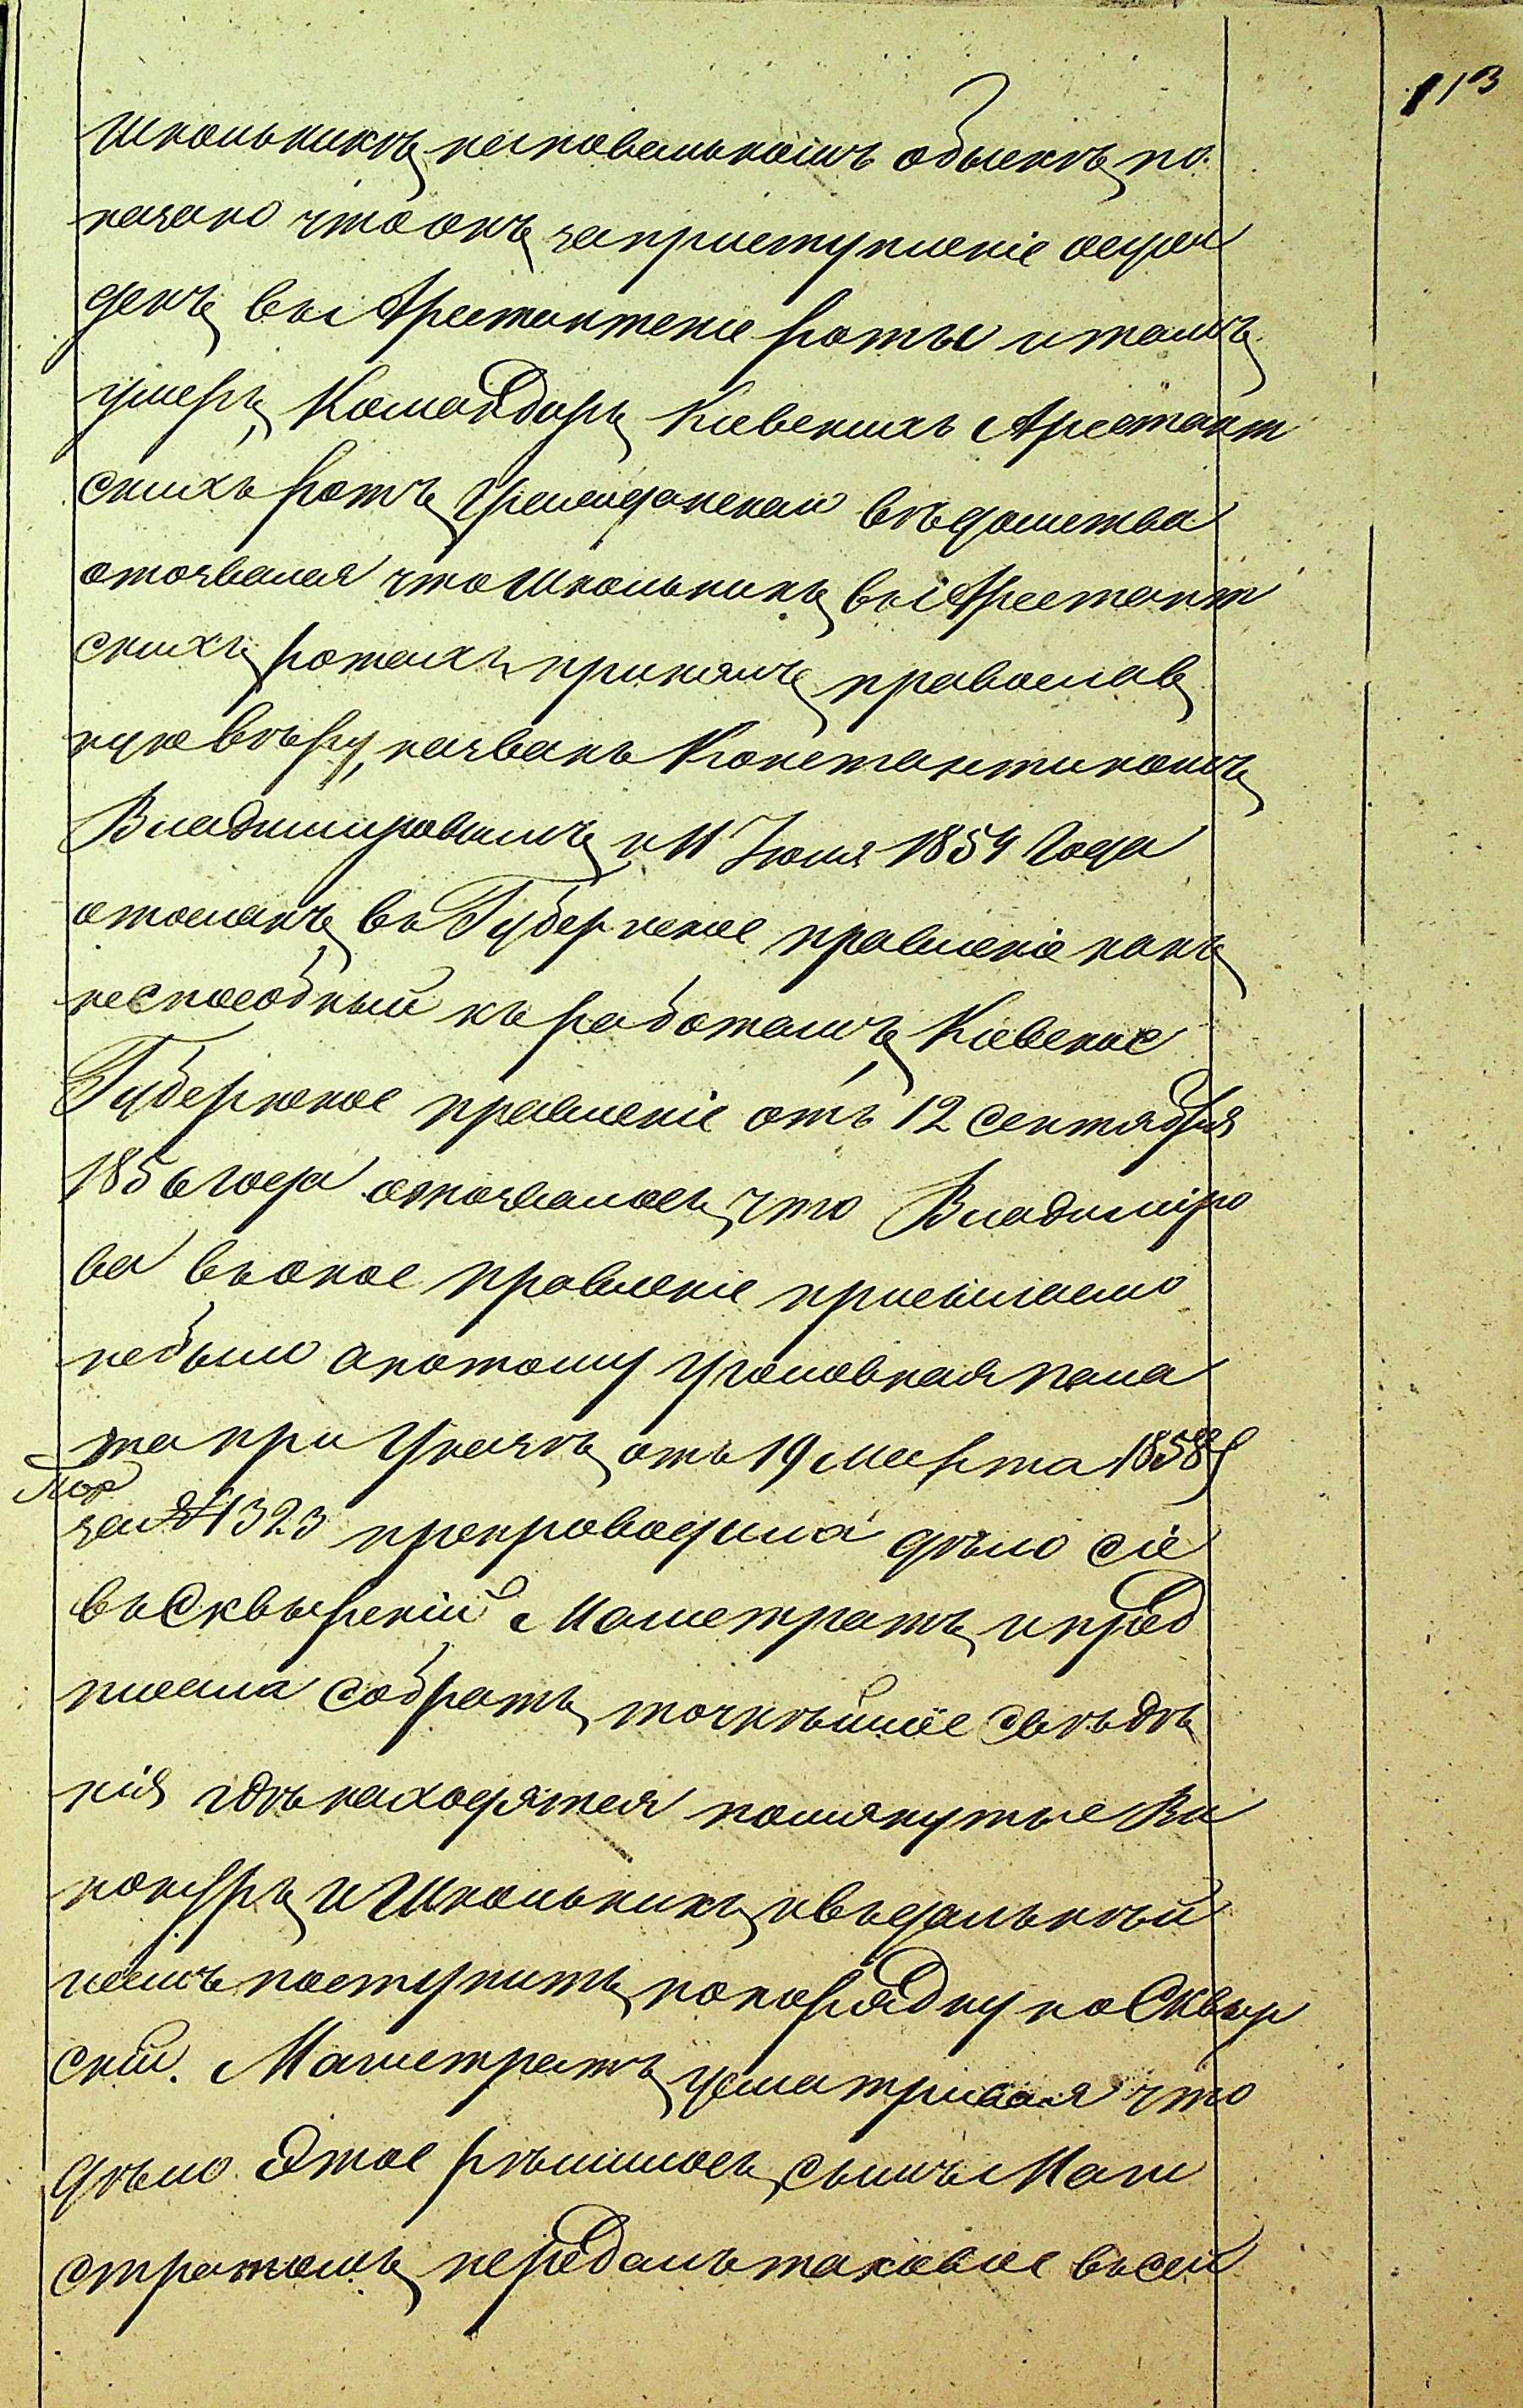 113
Школьникѣ неповальномъ обыскѣ по
казано что онъ запреступленіе осуж
денъ въ Арестантскіе роты и тамъ
умеръ, Командиръ Кіевскихъ Арестант
скихъ ротъ Гражданскаго вѣдомства
отозвался что Школьникъ въ Арестант
скихъ ротахъ принялъ православ
ную вѣру, названъ Константиномъ
Владимировымъ и 11 Іюля 1854 года
отосланъ въ Губернское правленіе какъ
неспособный къ работамъ, Кіевское
Губернское правленіе отъ 12 сентября
1856 года отозвалось что Владиміро
ва въ оное правленіе присылаемо
небыло а потому Уголовная пала
та при Указѣ отъ 19 Марта 1858 г
за № 1323 препроводила дѣло сіе
въ Сквырскій Магистратъ и пред
писала собрать точнѣйшіе свѣдѣ
нія гдѣ находятся помянутые Ви
нокуръ и Школьникъ и въ дальнѣй
шемъ поступить по порядку но Сквыр
скій Магистратъ усматривая что
дѣло этое рѣшилось симъ Маги
стратомъ передалъ таковое въ сей